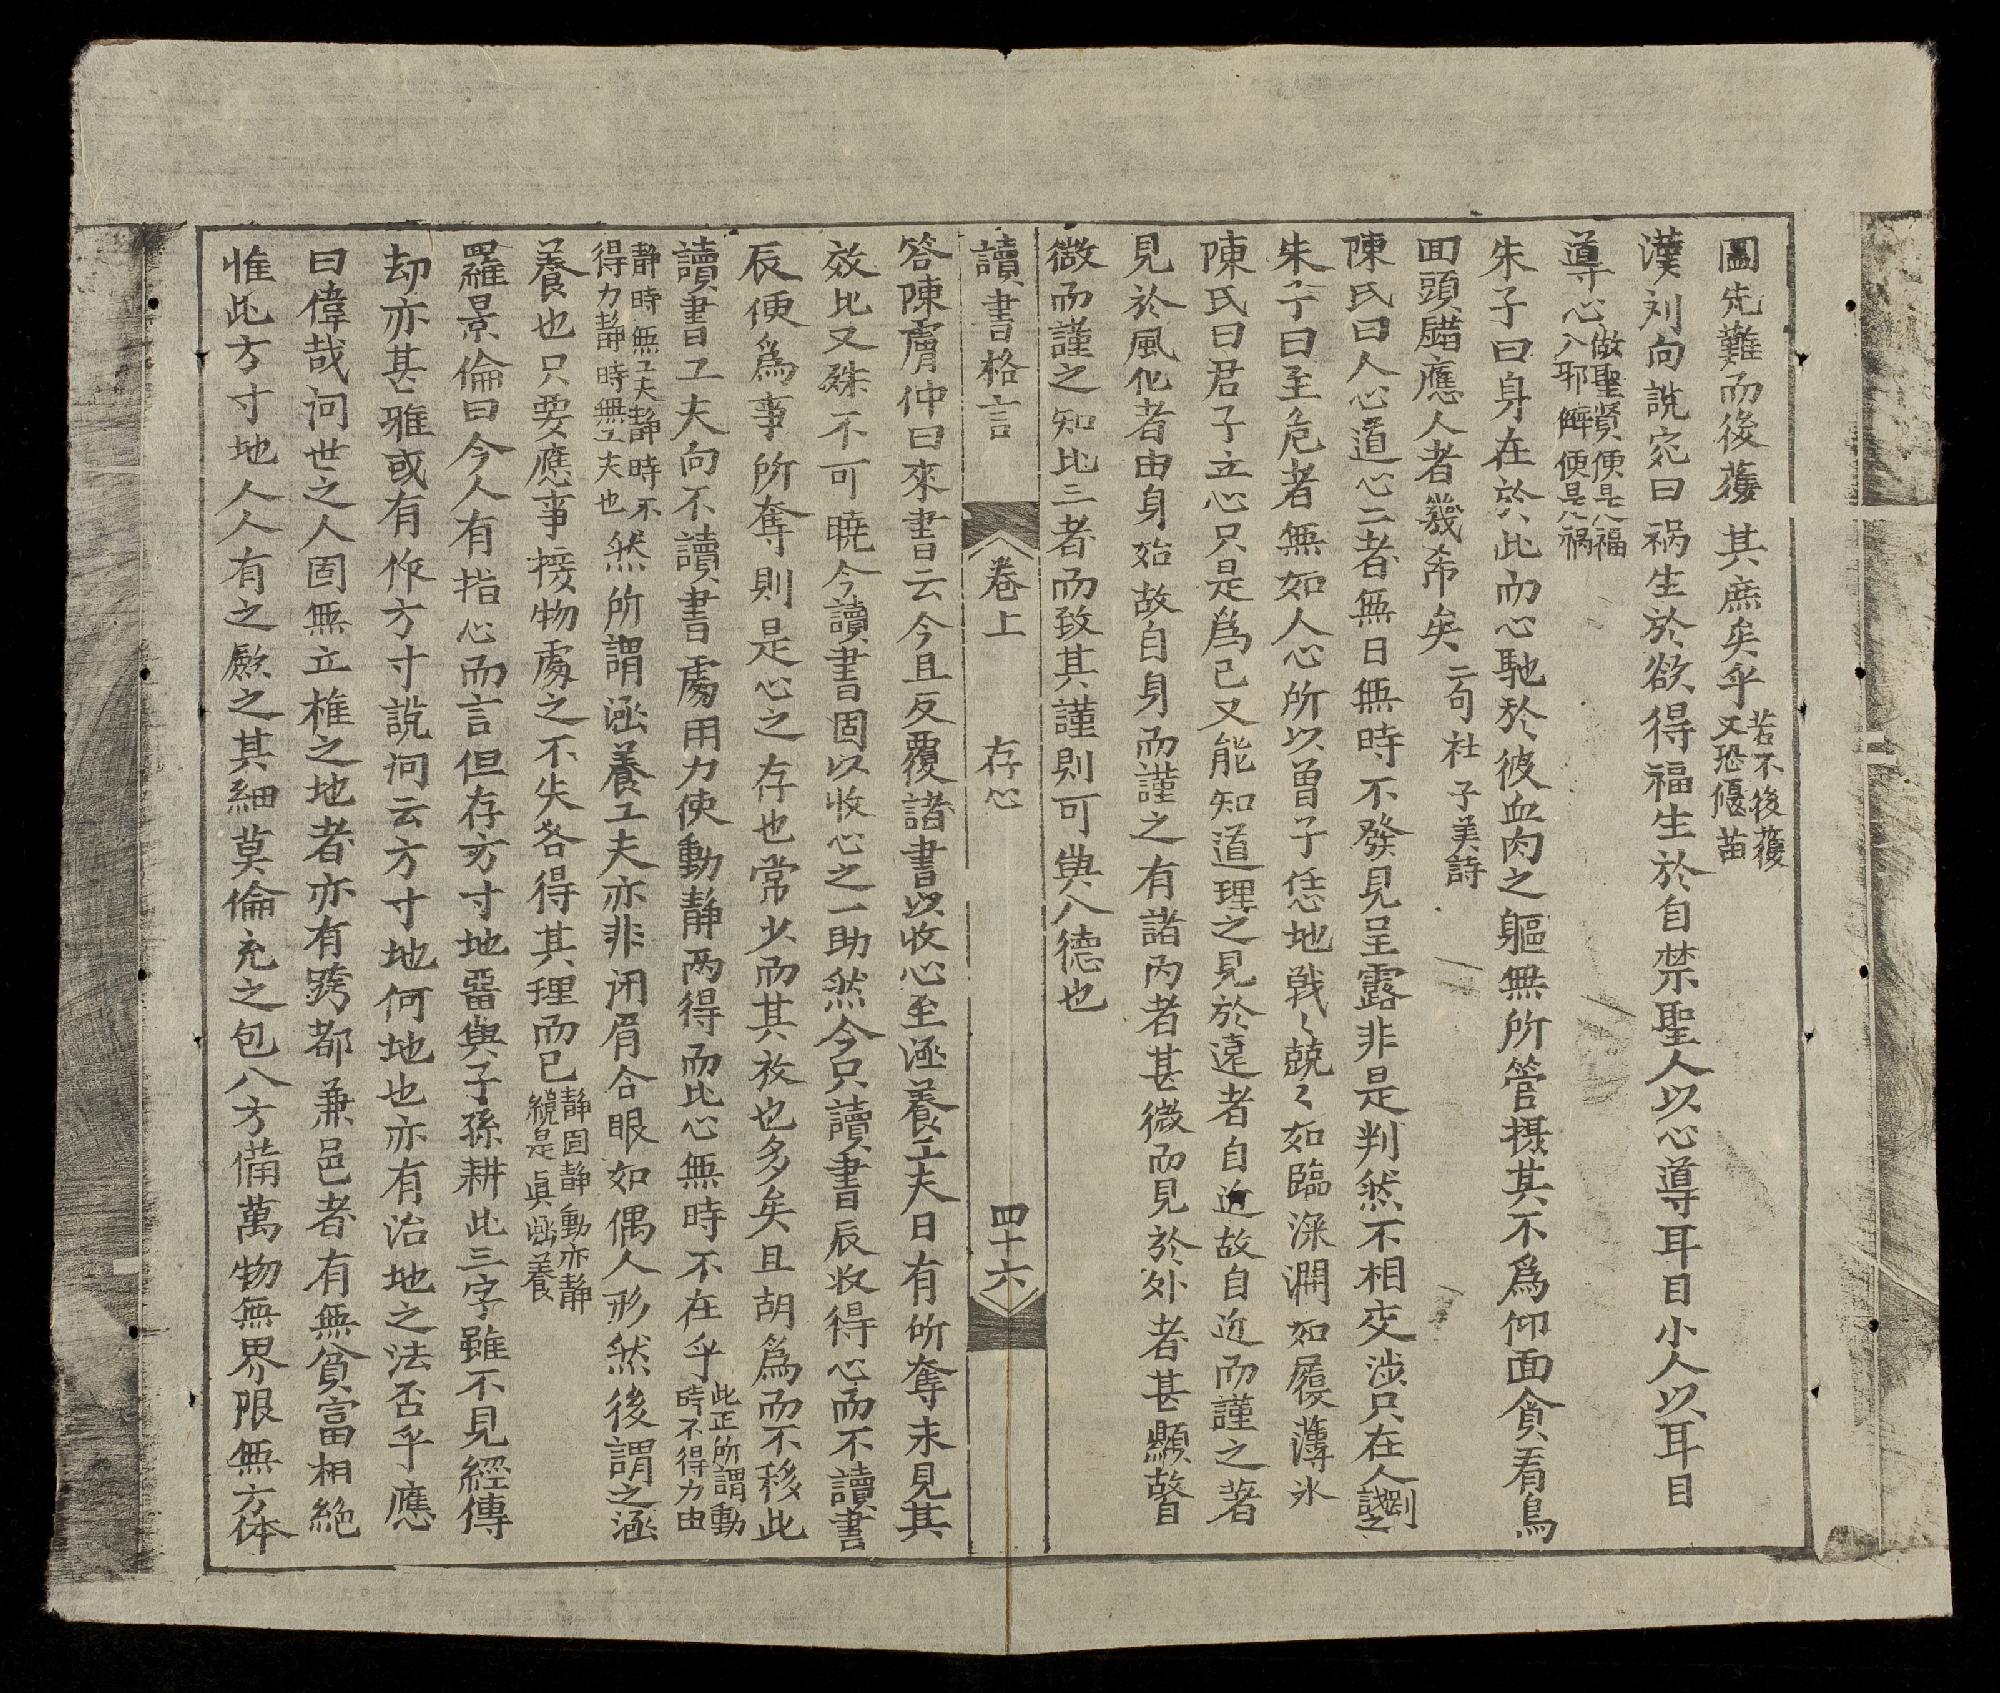 圖先難而後獲其庶矣乎若不後獲又恐偃苗
漢刘向說宛曰禍生於欲得福生於自禁聖人以心導耳目小人以耳目
導心做聖賢便是福入邪僻便是禍
朱子曰身在於此而心馳於彼血肉之軀無所管摄其不爲仰面貪看鳥
囬頭錯應人者幾希矣二句杜子美詩
陳氏曰人心道心二者無日無時不發見呈露非是判然不相交涉只在人別識之
朱子曰至危者無如人心所以曽子恁地戰〻兢〻如臨深淵如履薄氷
陳氏曰君子立心只是爲己又能知道理之見於遠者自近故自近而謹之著
見於風化者由身始故自身而謹之有諸内者甚微而見於外者甚顯故自
微而謹之知此三者而致其謹則可與入德也
讀書格言 卷上 存心 四十六
答陳膚仲曰來書云今且反覆諸書以收心至涵養工夫日有所奪未見其
效比又殊不可曉今讀書固以收心之一助然今只讀書辰收得心而不讀書
辰便爲事所奪則是心之存也常少而其放也多矣且胡爲而不移此
讀書工夫向不讀書處用力使動静两得而此心無時不在乎此正所謂動時不得力由
静時無工夫静時不得力静時無工夫也然所謂涵養工夫亦非闭眉合眼如偶人形然後謂之涵
養也只要應事接物處之不失各得其理而已静固静動亦静纔是眞涵養
羅景倫曰今人有指心而言但存方寸地畱與子孫耕此三字雖不見經傳
却亦甚雅或有作方寸說问云方寸地何地也亦有治地之法否乎應
曰偉哉问世之人固無立椎之地者亦有跨都兼邑者有無貧富相絶
惟此方寸地人人有之厥之其細莫倫充之包八方備萬物無界限無方体